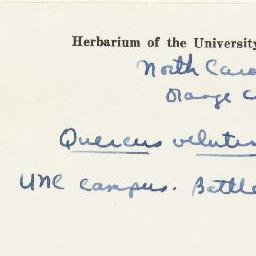 Herbarium of the University
North Caro
Orange C
Quercus velutin
UNC campus. Battle